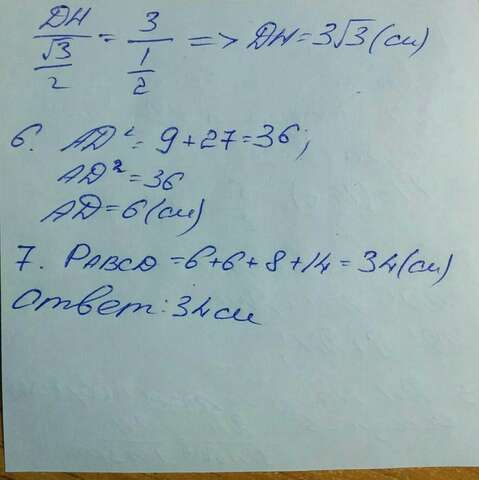 DH/(√3/2) = 3/(1/2) => DH = 3√3 (см)
6. AD² = 9 + 27 = 36;
AD² = 36
AD = 6 (см)
7. PABCD = 6 + 6 + 8 + 14 = 34 (см)
Ответ: 34 см